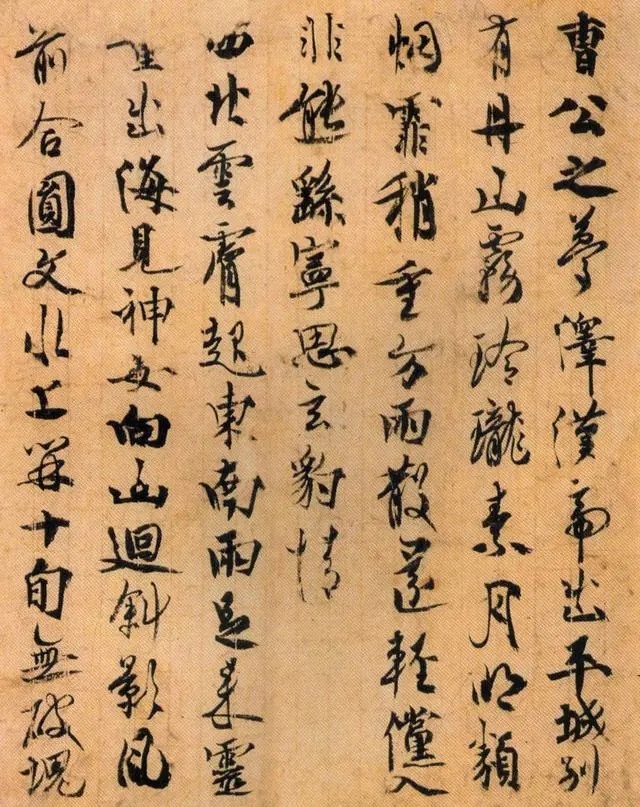 曹公之夢澤漢帝出平城別
有丹山霧玲瓏素月明類
烟霏稍重方雨散還輕儻入
非熊繇寧思玄豹情
西北雲膚起東南雨足来靈
童出海見神女向山迴斜影風
前合圓文水上開十旬無破塊